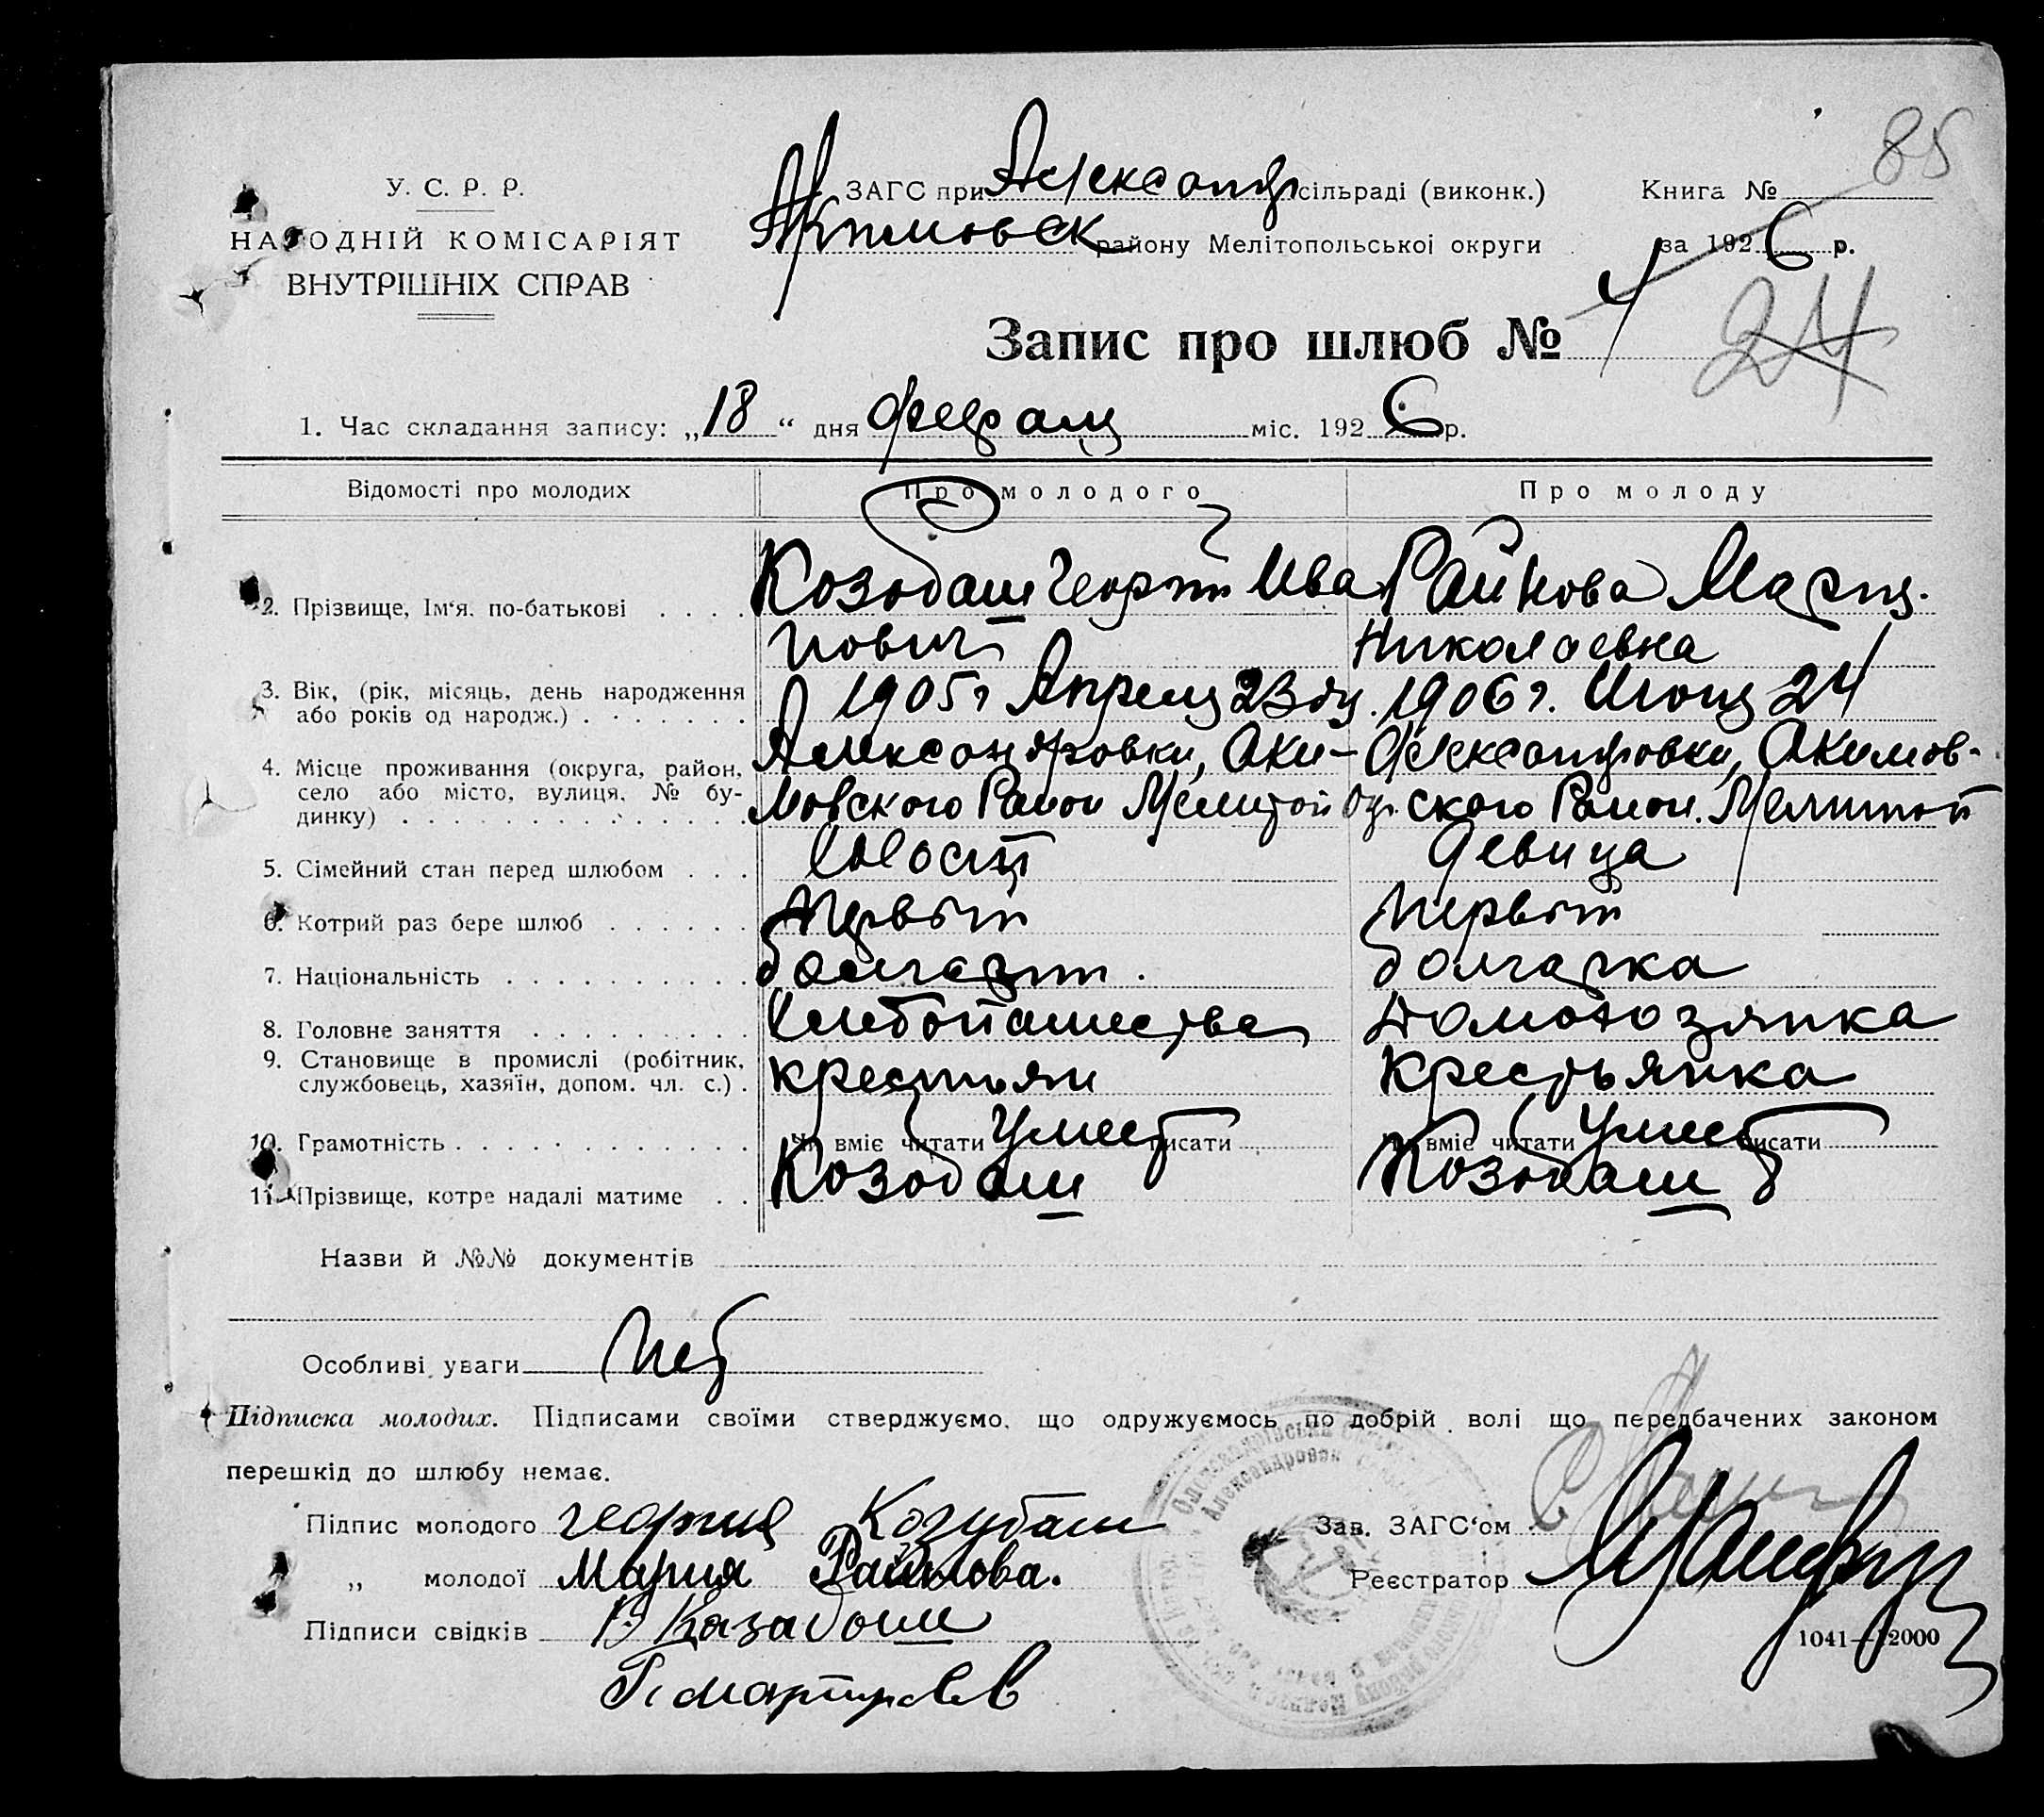 85
У. С. Р. Р.
НАРОДНІЙ КОМІСАРІЯТ
ВНУТРІШНІХ СПРАВ
ЗАГС при Александр сільраді (виконк.)
Акимовск району Мелітопольської округи
Книга №
за 1926 р.
Запис про шлюб № 4
24
1. Час складання запису: „18“ дня Февраля міс. 1926 р.
Відомості про молодих Про молодого Про молоду
2. Прізвище, Ім‘я, по-батькові . . . . Козобаш Георгий Ива Райнова Мария
нович Николаевна
3. Вік, (рік, місяць, день народження
або років од народж.) . . . . . . . 1905 г Апреля 23 дн. 1906 г. Июня 24
4. Місце проживання (округа, район,
село або місто, вулиця, № бу-
динку) . . . . . . . . . . . . . .
Александровки, Аки- Александровки, Акимов-
мовского Район Мелитоп Окр. ского Район. Мелитоп
5. Сімейний стан перед шлюбом . . . Холост Девица
6. Котрий раз бере шлюб . . . . . . Первый Первый
7. Національність . . . . . . . . . . болгарин. болгарка
8. Головне заняття . . . . . . . . . Хлебопашества Домохозяйка
9. Становище в промислі (робітник,
службовець, хазяїн, допом. чл. с.) . крестьян Крестьянка
10. Грамотність . . . . . . . . . . . . Чи вміє читати Умеет писати Чи вміє читати Умеет писати
11. Прізвище, котре надалі матиме . . Козобаш Козобаш
Назви й №№ документів
Особливі уваги Нет
Підписка молодих. Підписами своїми стверджуємо, що одружуємось по добрій волі що передбачених законом
перешкід до шлюбу немає.
Підпис молодого Георгия Козубаш
„ молодої Мария Райнова.
Підписи свідків В Казабаш
Зав. ЗАГС‘ом
Реєстратор
1041—12000